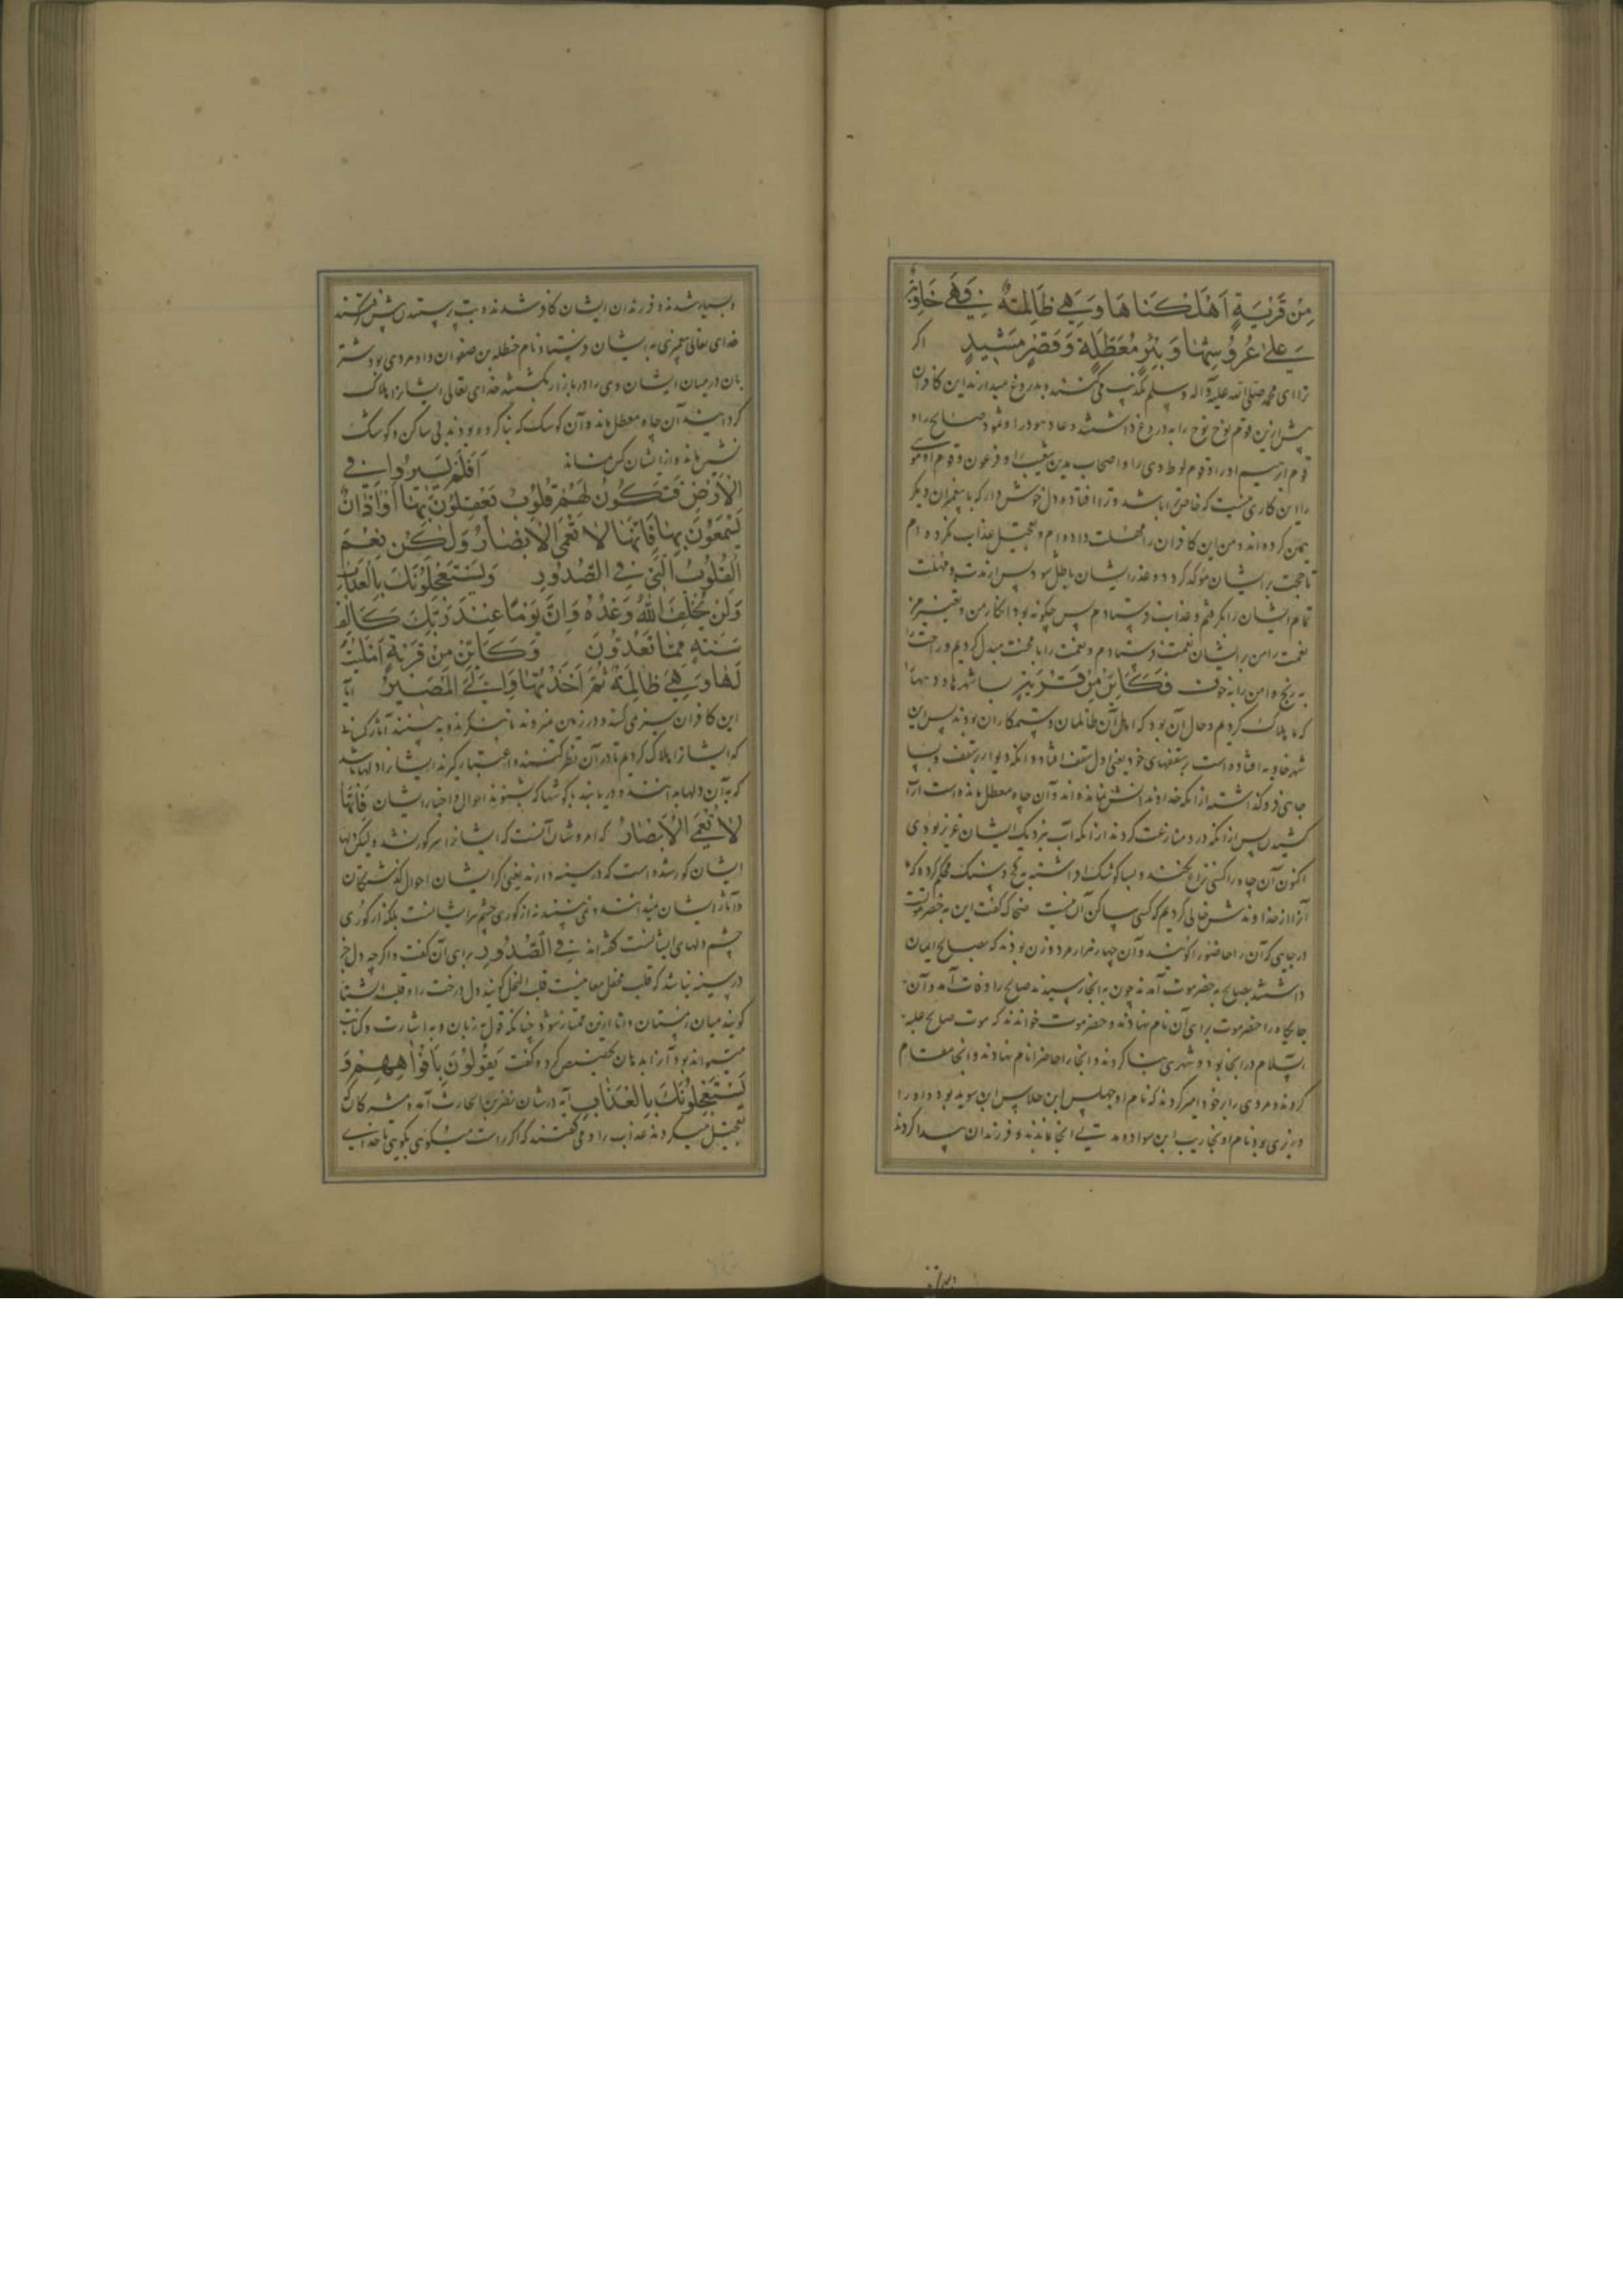 مِنْ قَرْيَةٍ اَهْلَكْنَاهَا وَهِيَ ظَالِمَةٌ فَهِيَ خَاوِيَةٌ
عَلَىٰ عُرُوشِهَا وَبِئْرٍ مُعَطَّلَةٍ وَقَصْرٍ مَشِيدٍ اگر
ترا ای محمد صلی الله علیه وآله وسلم تکذیب می‌کنند و بدروغ میدارند این کافران
پیش ازین قوم نوح نوح را به دروغ داشتند و عاد هود را و ثمود صالح را و
قوم ابرهیم او را و قوم لوط وی را و اصحاب مدین شعیب را و فرعون و قوم او موسی
را این کاری نیست که خاصه ترا باشد و ترا افتاده دل خوش دار که با پیغمبران دیگر
همین کرده‌اند و من این کافران را مهلت داده‌ام و تعجیل عذاب نکرده‌ام
تا حجت بر ایشان مؤکد کردد و عذر ایشان باطل شود پس از مدت و مهلت
تمام ایشان را بگرفتم و عذاب فرستادم پس چگونه بود انکار من و تغییر من
نعمت را من بر ایشان نعمت فرستادم و نعمت را با محنت مبدل کردیم و راحت را
به رنج و امن را به خوف فَكَاَيِّنْ مِنْ قَرْيَةٍ بسا شهرها و دیهها
که ما هلاک کردیم و حال آن بود که اهل آن ظالمان و ستمکاران بودند پس این
شهر خاویه افتاده است بر سقفهای خود یعنی اول سقف افتاده و آنکه دیوار بر سقف و بسا
چاهی فروگذاشته از آنکه خداوندانش نمانده‌اند و آن چاه معطل مانده است از آب
کشیدن پس از آنکه در و منازعت کردند از آنکه آب نزدیک ایشان عزیز بودی
اکنون آن چاه را کسی نزاع نکند و بسا کوشک افراشته به گچ و سنگ محکم کرده که ما
آنرا از خداوندش خالی کردیم که کسی ساکن آن نیست ضحاک گفت این به حضرموت است
در جایی که آن را حاضورا گویند و آن چهار هزار مرد و زن بودند که بصالح ایمان
داشتند با صالح به حضرموت آمدند چون به آنجا رسیدند صالح را وفات آمد و آن
جایگاه را حضرموت برای آن نام نهادند و حضرموت خواندند که موت صالح علیه
السلام در آنجا بود و شهری بنا کردند و آنجا را حاضرا نام نهادند و آنجا مقام
کردند و مردی را بر خود امیر کردند که نام او جهلس ابن جلاس ابن سوید بود و او را
وزیری بود نام او سنجاریب ابن سواده مدتی آنجا ماندند و فرزندان پیدا کردند
و بسیار شدند و فرزندان ایشان کافر شدند و بت پرستیدن پیش گرفتند
خدای تعالی پیغمبری به ایشان فرستاد نام حنظله بن صفوان و او مردی بود شتر
بان در میان ایشان وی را در بازار بکشتند خدای تعالی ایشان را هلاک
گردانید آن چاه معطل ماند و آن کوشک که بنا کرده بودند بی ساکن و کوشک
نشین ماند و از ایشان کس نماند اَفَلَمْ يَسِيرُوا فِي
الْاَرْضِ فَتَكُونَ لَهُمْ قُلُوبٌ يَعْقِلُونَ بِهَا اَوْ اٰذَانٌ
يَسْمَعُونَ بِهَا فَاِنَّهَا لَا تَعْمَى الْاَبْصَارُ وَلٰكِنْ تَعْمَى
الْقُلُوبُ الَّتِي فِي الصُّدُورِ وَيَسْتَعْجِلُونَكَ بِالْعَذَابِ
وَلَنْ يُخْلِفَ اللّٰهُ وَعْدَهُ وَاِنَّ يَوْمًا عِنْدَ رَبِّكَ كَاَلْفِ
سَنَةٍ مِمَّا تَعُدُّونَ وَكَاَيِّنْ مِنْ قَرْيَةٍ اَمْلَيْتُ
لَهَا وَهِيَ ظَالِمَةٌ ثُمَّ اَخَذْتُهَا وَاِلَيَّ الْمَصِيرُ آیا
این کافران سیر نمی‌کنند و در زمین نمی‌روند تا بنگرند و ببینند آثار کسانی
که ایشان را هلاک کردیم تا در آن نظر کنند و اعتبار گیرند ایشان را دلها باشد
که به آن دلها بدانند و دریابند یا گوشها که بشنوند احوال و اخبار ایشان فَاِنَّهَا
لَا تَعْمَى الْاَبْصَارُ که امر و شان آنست که ایشان را سر کور نشد ولیکن دلها
ایشان کور شده است که در سینه دارند یعنی اگر ایشان احوال گذشتگان
و آثار ایشان نمیدانند و نمی‌بینند نه از کوری چشم سر ایشانست بلکه از کوری
چشم دلهای ایشانست فِي الصُّدُورِ برای آن گفت و اگرچه دل جز
در سینه نباشد که قلب محتمل معانیست قلب النخل گویند دل درخت را و قلب الشتا
گویند میان زمستان را تا ازین ممتاز شود چنانکه قول به زبان و به اشارت و کتابت
میتواند بود آنرا به دهان تخصیص کرد و گفت يَقُولُونَ بِاَفْوَاهِهِمْ وَ
يَسْتَعْجِلُونَكَ بِالْعَذَابِ آیه در شان نضر بن الحارث آمد و مشرکان
تعجیل میکردند عذاب را و می‌گفتند که اگر راست میگویی بگوی تا خدای